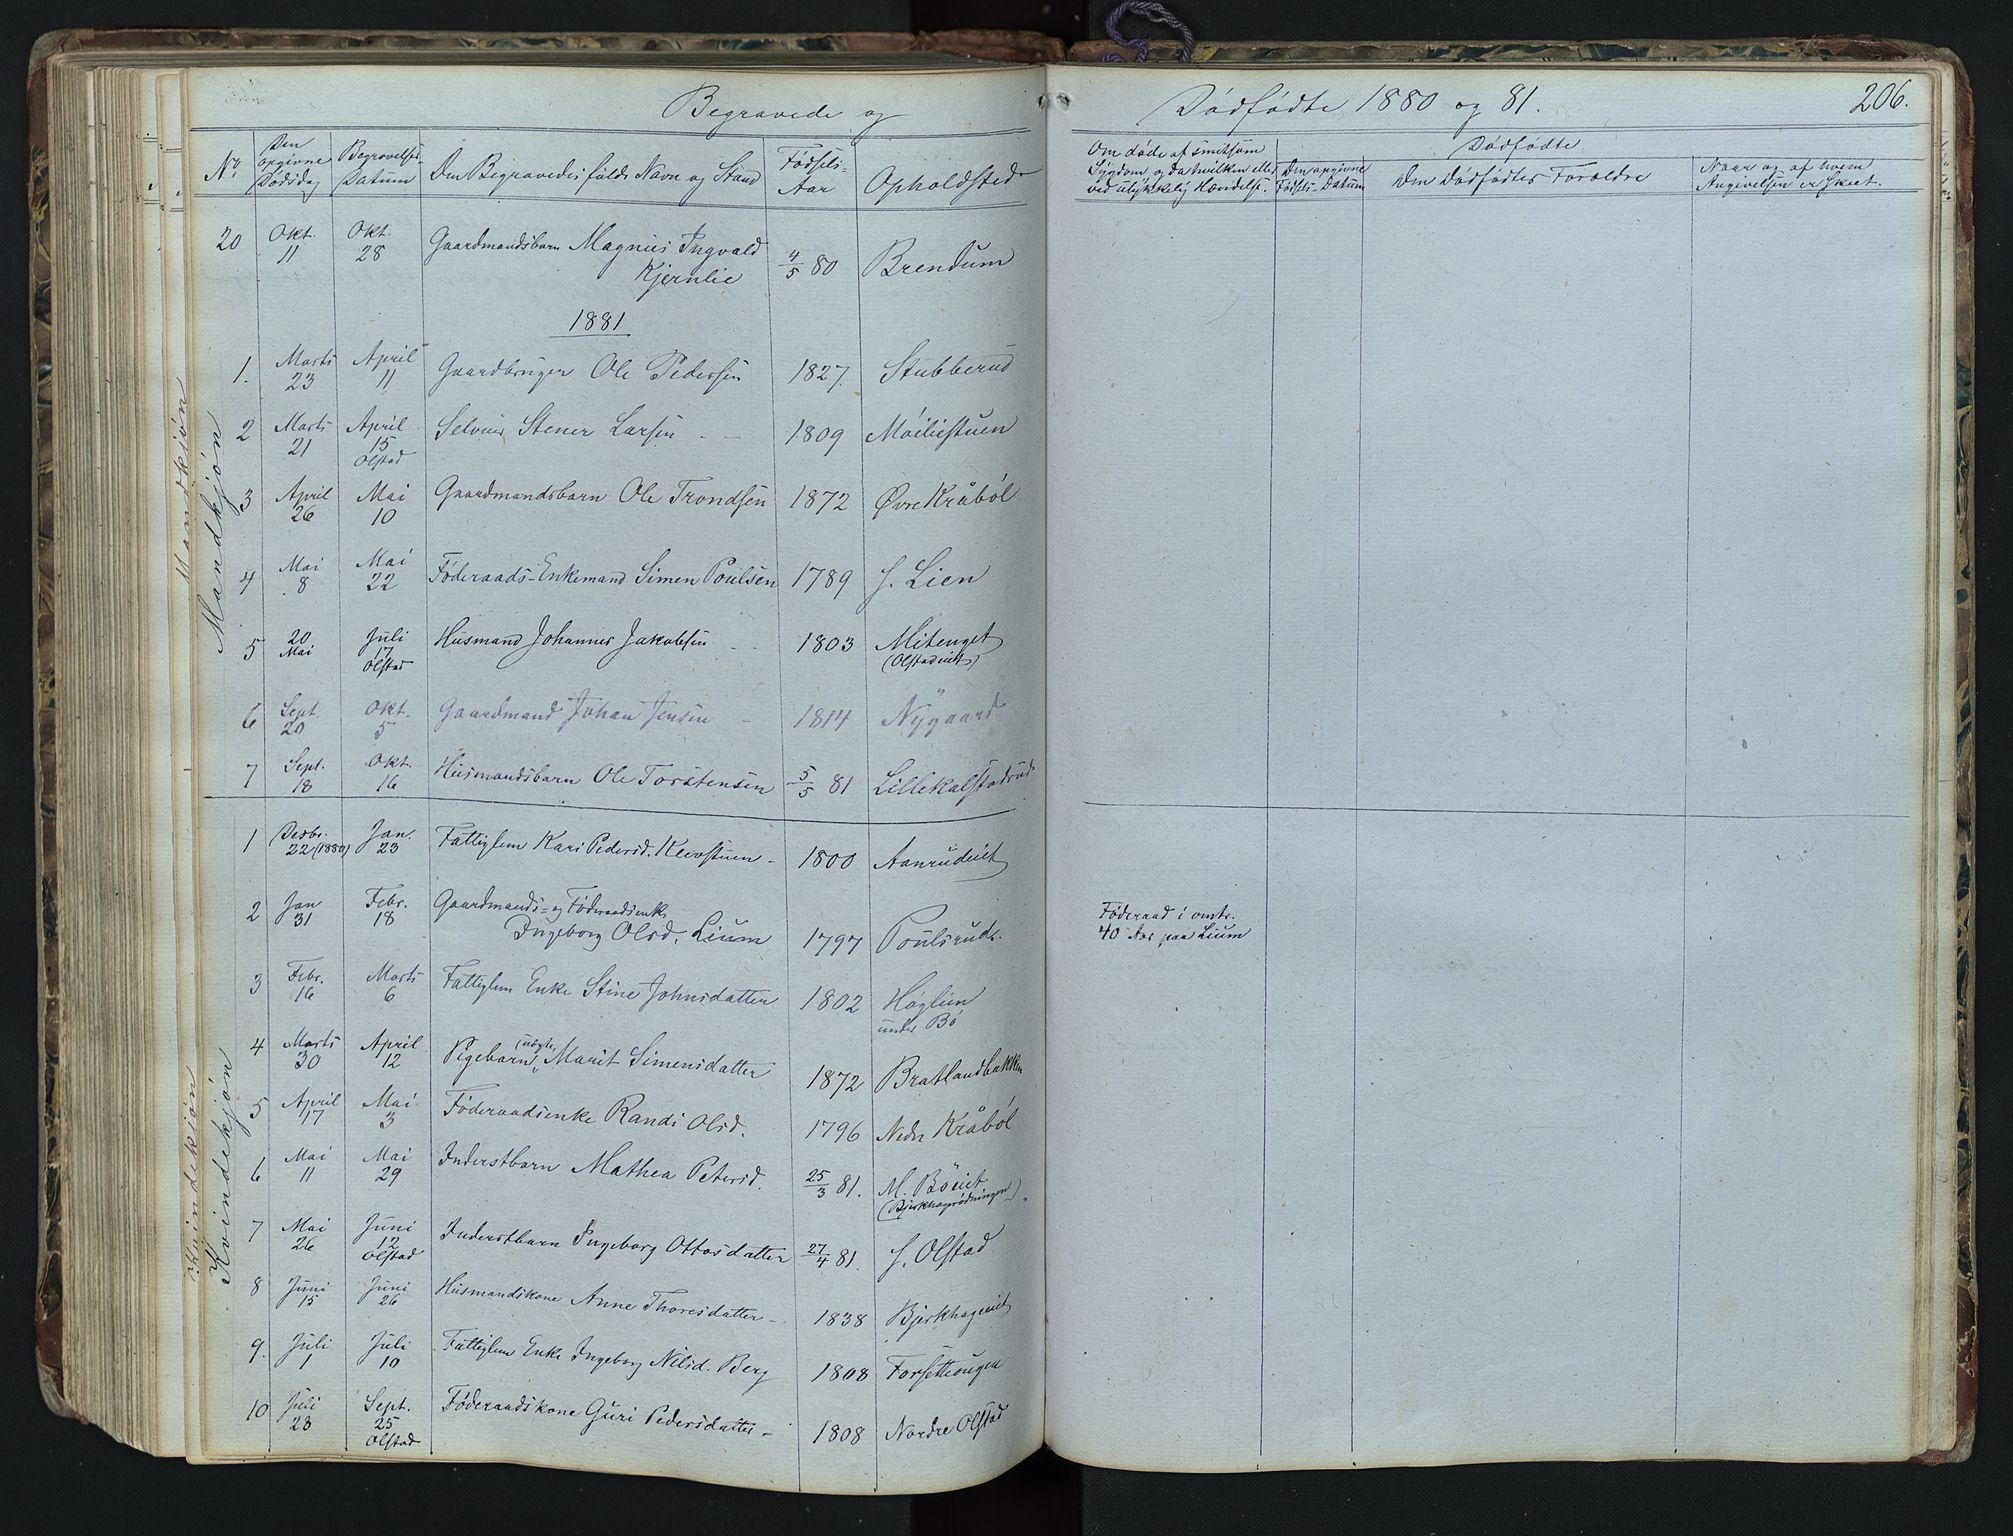 Begravede og Dödfödte 1880 og 81. 206.
No. Den opgivne Dødsdag Begravelses-Datum Den Begravedes fulde Navn og Stand Fødsels-Aar Opholdsted
Om døde af smitsom Sygdom, og da hvilken eller ved ulykkelig Hændelse. Den opgivne Fødsels-Datum Dødfødte Den Dödfödtes Foroldre Naar og af hvem Angivelsen er skeet.
20 Okt. 11 Okt. 28 Gaardmandsbarn Magnus Ingvald Kjernlie 4/5 80 Brendum
1881
Mandkjön
1. Marts 23 April 11 Gaardbruger Ole Pedersen 1827. Stubberud
2 Marts 21 April 15 Olstad Selveier Stener Larsen 1809 Möiliestuen
3 April 26 Mai 10 Gaardmandsbarn Ole Trondsen 1872 Øvre Kråböl
4 Mai 8 Mai 22 Föderaads-Enkemand Simen Poulsen 1789 S. Lien
5 20 Mai Juli 17 Olstad Husmand Johannes Jakobsen 1803 Mitenget (Olstadeiet)
6 Sept. 20 Okt. 5 Gaardmand Johan Jensen 1814 Nygaard
7 Sept. 18 Okt. 16 Husmandsbarn Ole Torstensen 5/5 81 Lillekalstadrud
Kvindekjön
1 Desbr. 22 (1880) Jan. 23 Fattiglem Kari Pedersd. Klevstuen 1800 Aanrudeiet
2 Jan 31 Febr. 18 Gaardmands- og Föderaadsenke Ingeborg Olsd. Lium 1797 Poulsrud. Föderaad i omtr. 40 Aar paa Lium
3 Febr. 16 Marts 6 Fattiglem Enke Stine Johnsdatter 1802 Haglien under Bö
4 Marts 30 April 12 Pigebarn (uægte) Marit Simensdatter 1872 Bratlandbakken
5 April 17 Mai 3 Föderaadsenke Randi Olsd. 1796 Nedre Kråböl
6 Mai 11 Mai 29 Inderstbarn Mathea Petersd. 25/3 81. M. Böeiet (Bjerkhagerødningen)
7 Mai 26 Juni 12 Olstad Inderstbarn Ingeborg Ottosdatter 27/4 81. S. Olstad
8 Juni 15 Juni 26 Husmandskone Anne Thoresdatter 1838 Bjerkhageeiet
9. Juli 1 Juli 10 Fattiglem Enke Ingeborg Nilsd. Berg 1808 Forsetteougen
10 Juli 28 Sept. 25 Olstad Föderaadskone Guri Pedersdatter 1808 Nordre Olstad
Mandkjön
Kvindekjön